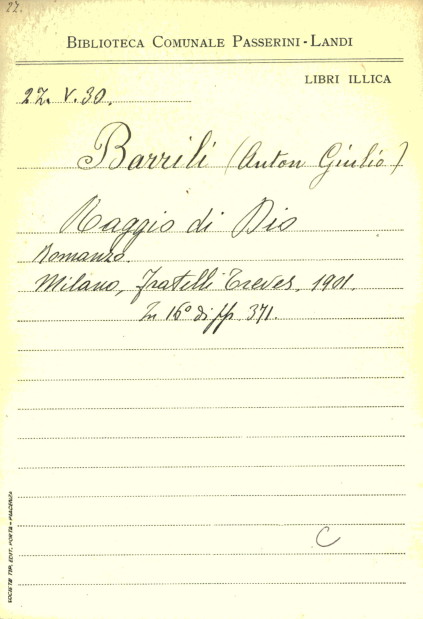 27.
BIBLIOTECA COMUNALE PASSERINI-LANDI
LIBRI ILLICA
27. V. 30.
Barrili (Anton Giulio)
Raggio di Dio
Romanzo.
Milano, Fratelli Treves. 1901.
In 16° di pp. 371.
C
SOCIETÀ TIP. EDIT. PORTA - PIACENZA